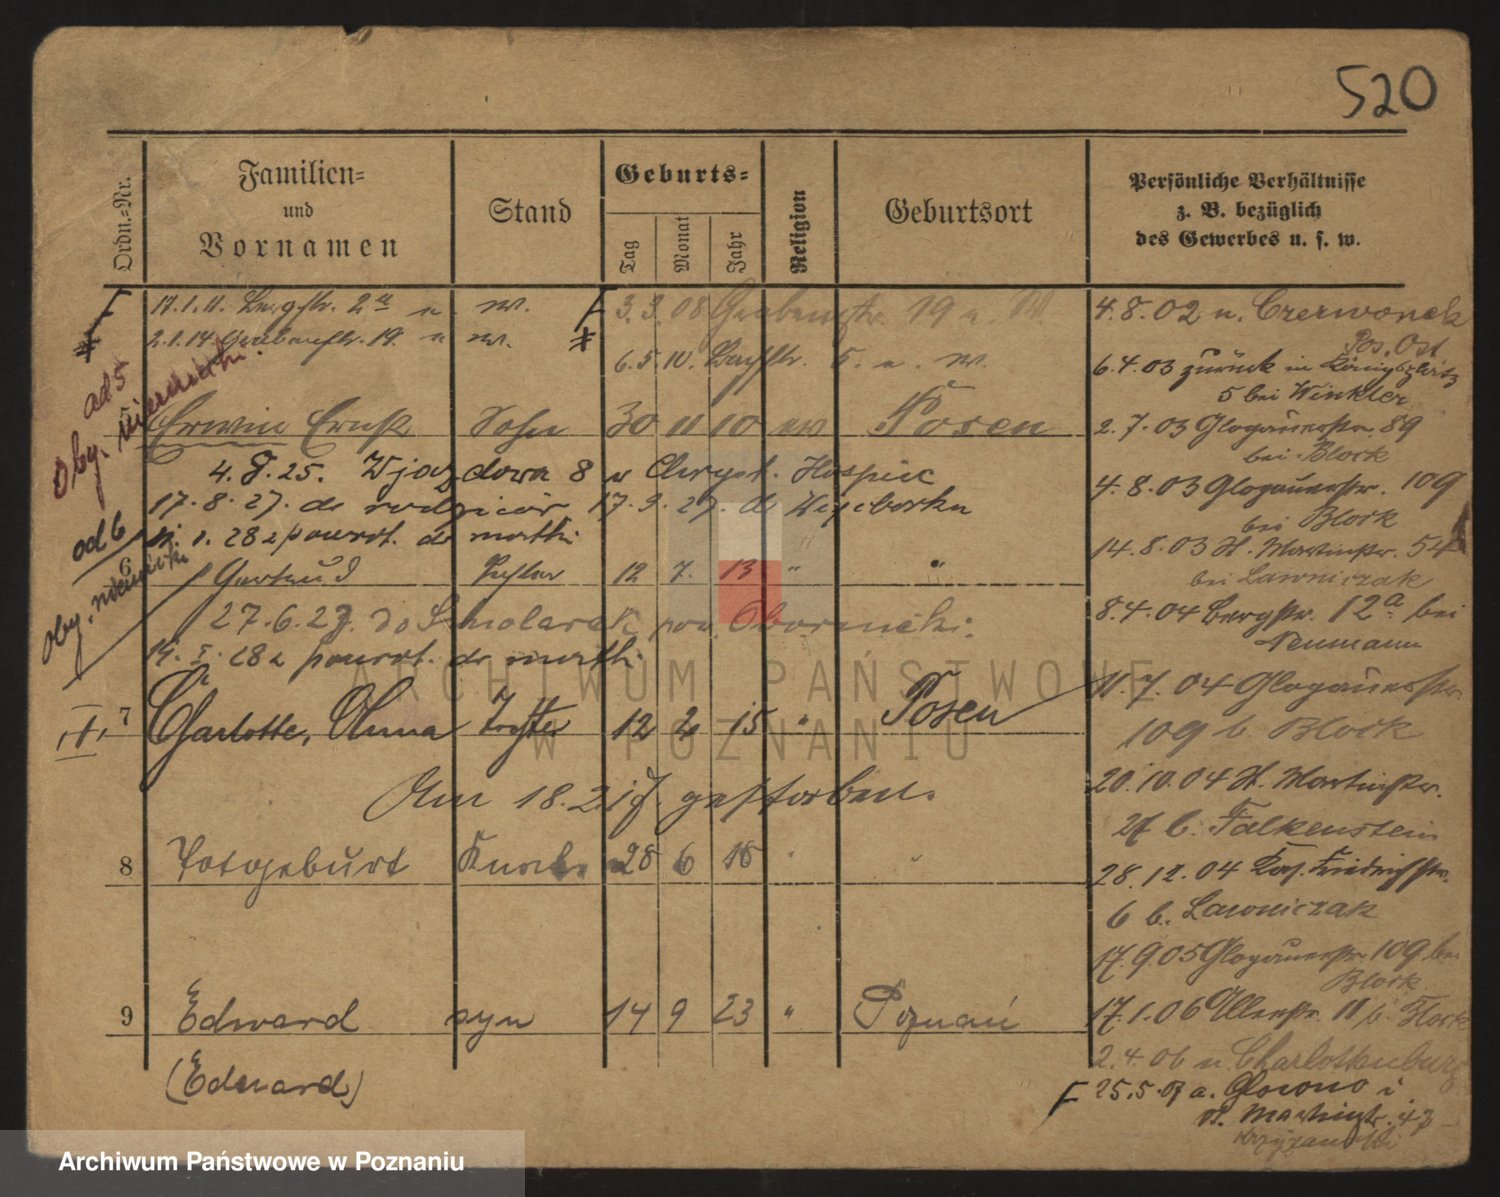 520
Ordn.-Nr.
Familien-
und
Vornamen
Stand
Geburts-
Tag
Monat
Jahr
Religion
Geburtsort
Persönliche Verhältnisse
z. B. bezüglich
des Gewerbes u. s. w.
17.1.11. Bergstr. 2a n. w.
2.1.14. Grabenstr. 19. n w.
3.3.08 Grabenstr. 19 n. W.
6.5.10. Bachstr. 5. n. w.
ad 5
oby. niemiecki.
5 Erwin Ernst Sohn 30 11 10 ev Posen
4.8.25. Wjazdowa 8 w Chryst. Hospic
17.8.27. do rodziców 17.9.27. do Węgeborka
11.1.28 z powrot. do matki
ad 6
oby. niemiecki
6 Gertrud Tochter 12 7. 13 " "
27.6.27. do pow. Obornicki.
14.I.28 z powrot. do matki.
7 Charlotte, Anna Tochter 12 2 15 " Posen
Am 18.2.17. gestorben.
8 Totgeburt Knabe 28 6 18 " "
9 Edward syn 14 9 23 " Poznań
(Eduard)
4.8.02 n. Czerwonak
Pos. Ost
6.4.03 zurück in Königsplatz
5 bei Winkler
2.7.03 Glogauerstr. 89
bei Block
4.8.03 Glogauerstr. 109
bei Block
14.8.03 St. Martinstr. 54
bei Lawniczak
8.4.04 Bergstr. 12a bei
Neumann
11.7.04 Glogauerstr.
109 b. Block
20.10.04 St. Martinstr.
27 b. Falkenstein
28.12.04 Kais. Friedrichstr.
6 b. Lawniczak
17.9.05 Glogauerstr. 109 bei
Block
17.1.06 11 b. Block
2.4.06 n. Charlottenburg
25.5.07 a.
St. Martinstr. 47
ARCHIWUM PAŃSTWOWE
W POZNANIU
Archiwum Państwowe w Poznaniu